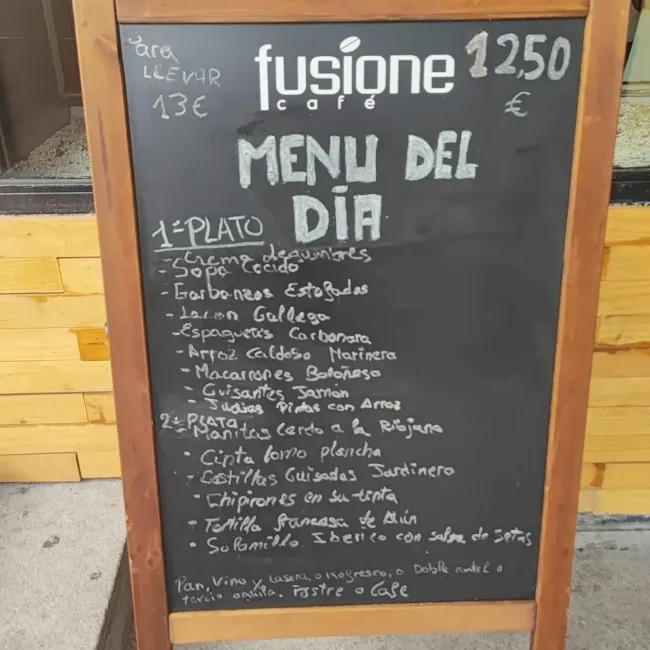 Para
LLEVAR
13€
fusione
café
12,50
€
MENU DEL
DÍA
1º PLATO
- Crema legumbres
- Sopa Cocido
- Garbanzos Estofados
- Lacon Gallego
- Espaguetis Carbonara
- Arroz Caldoso Marinera
- Macarrones Boloñesa
- Guisantes Jamon
- Judias Pintas con Arroz
2º PLATO
- Manitas Cerdo a la Riojano
• Cinta lomo plancha
• Costillas Guisadas Jardinero
• Chipirones en su tinta
• Tortilla francesa de Atún
• Solomillo Iberico con salsa de setas
Pan, Vino y casera, o Refresco, o Doble
tercio aguila. Postre o Cafe